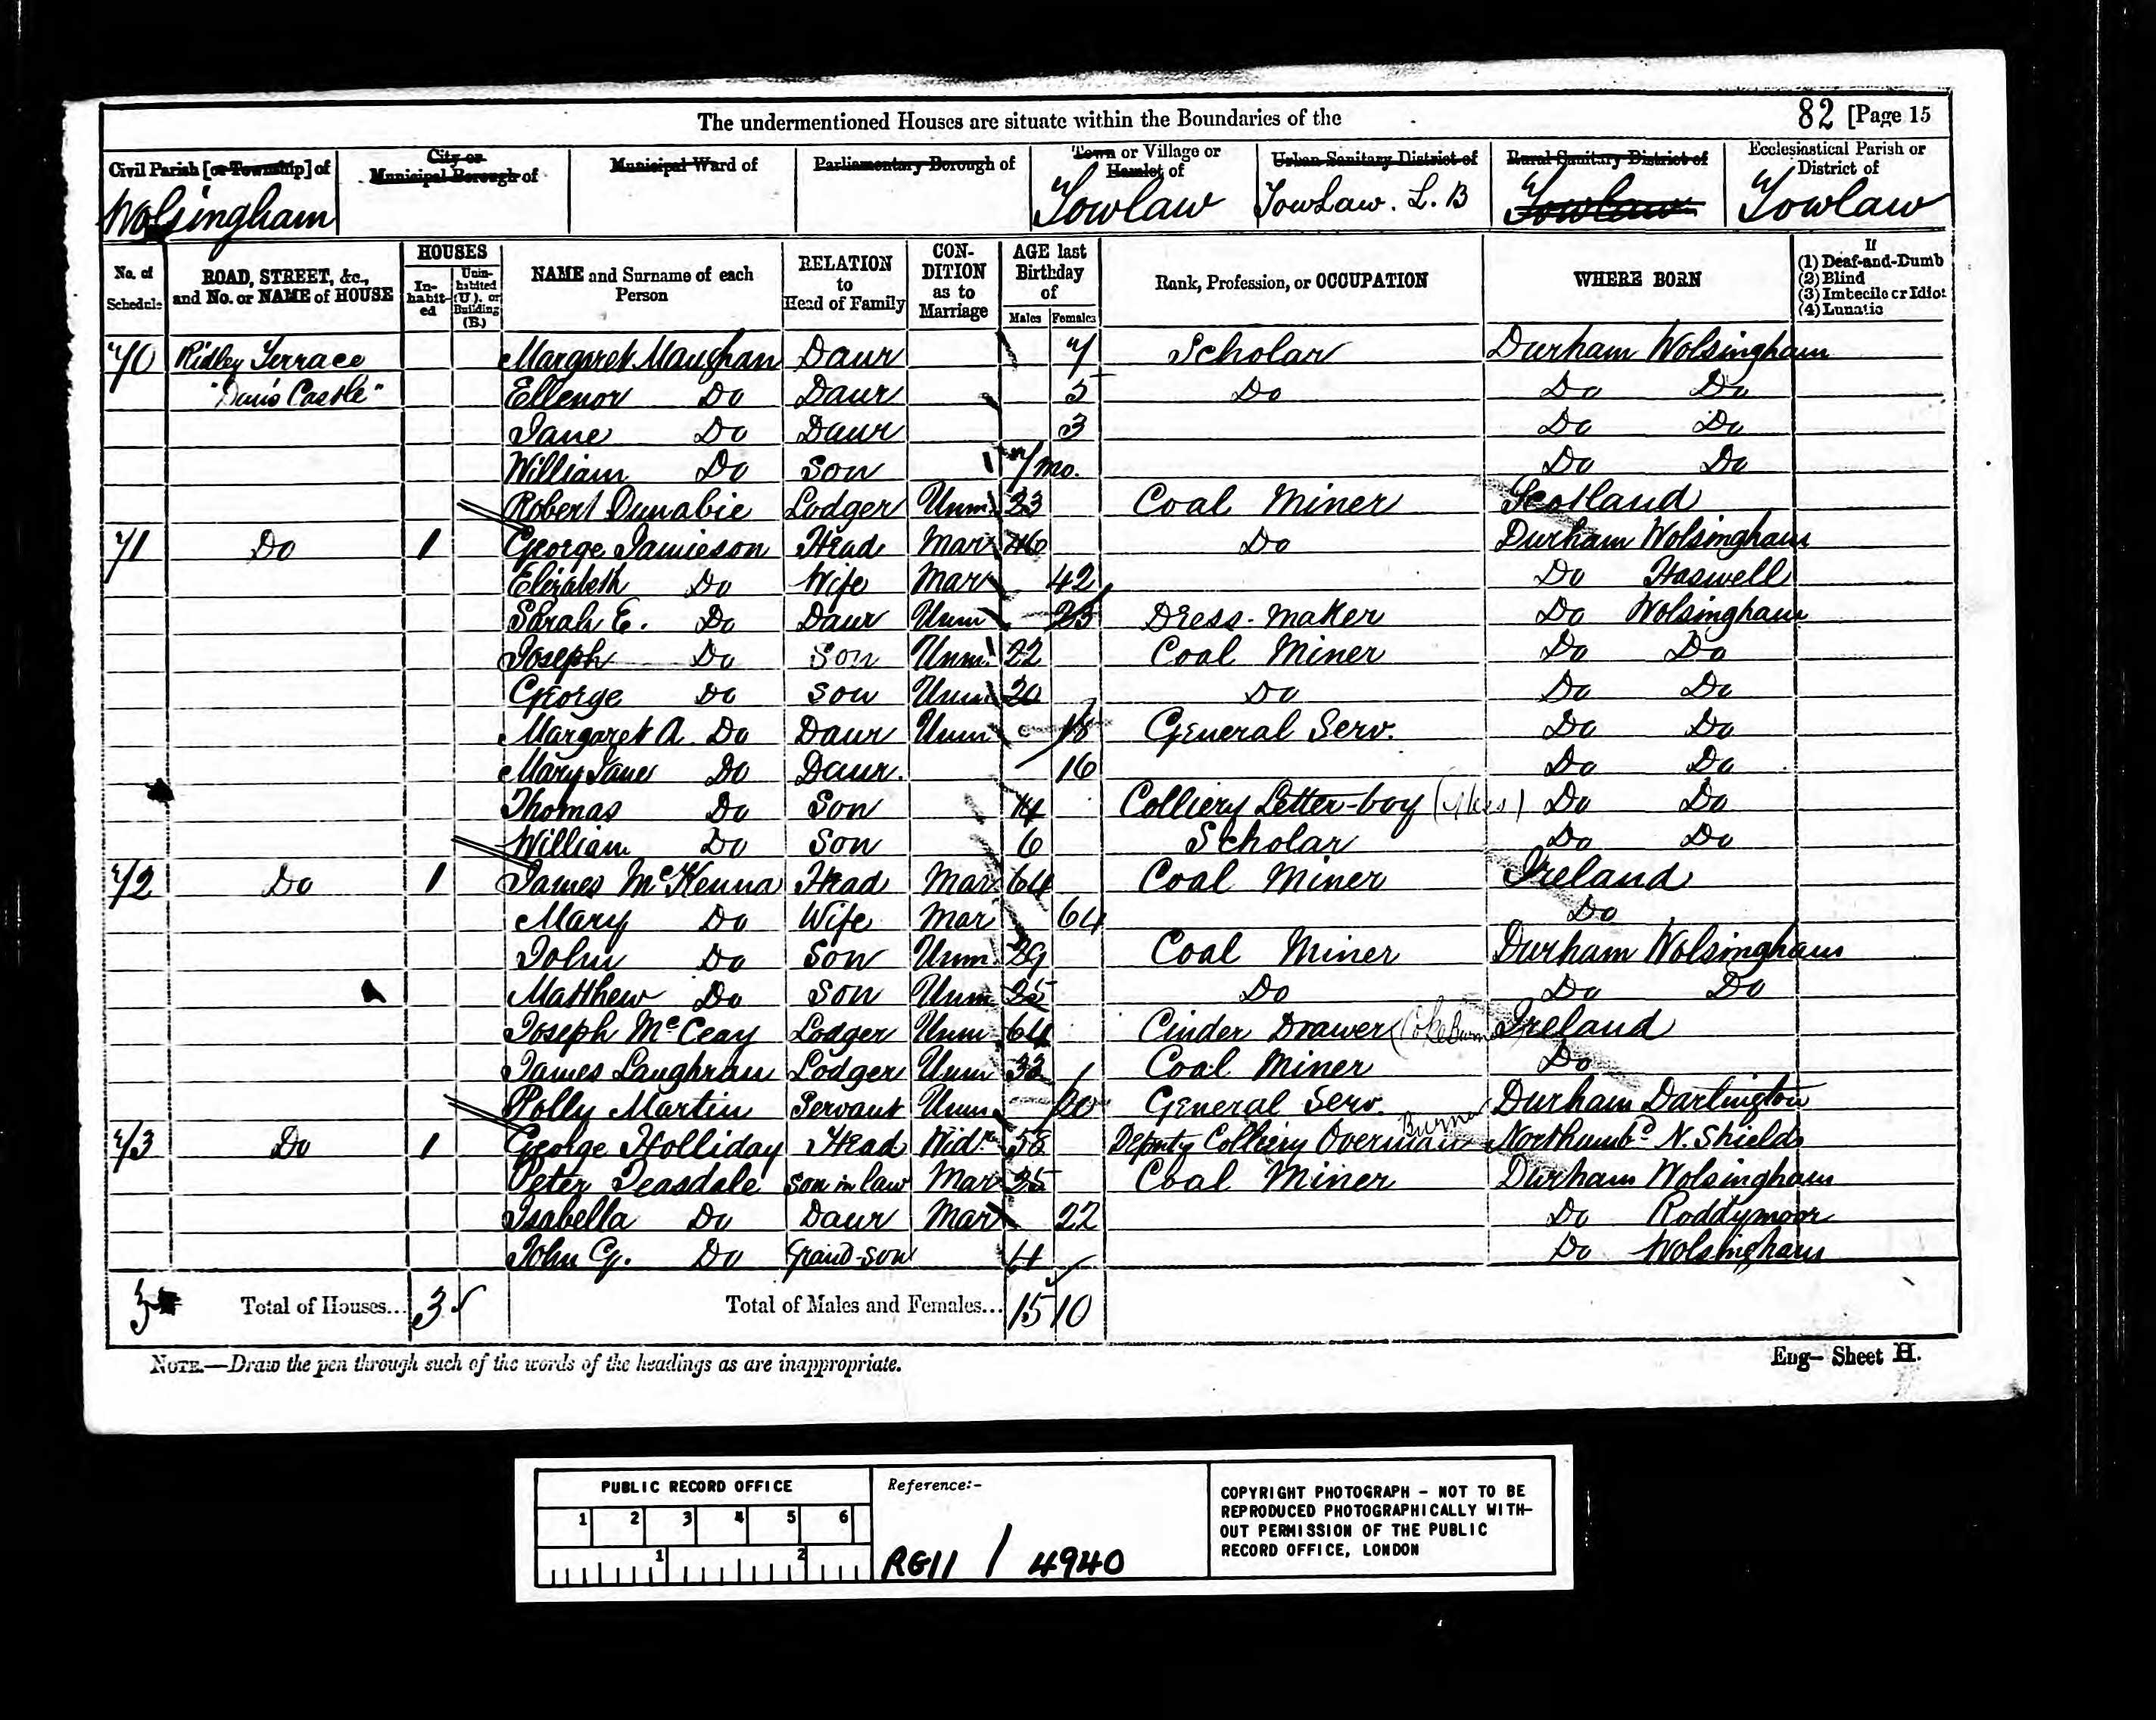 The undermentioned Houses are situate within the Boundaries of the
82 [Page 15
Civil Parish [or Township] of Wolsingham
City or Municipal Borough of
Municipal Ward of
Parliamentary Borough of
Town or Village or Hamlet of Towlaw
Urban Sanitary District of TowLaw. L. B
Rural Sanitary District of Towlaw
Ecclesiastical Parish or District of Towlaw
No. of Schedule
ROAD, STREET, &c., and No. or NAME of HOUSE
HOUSES
Inhabited
Uninhabited (U.), or Building (B.)
NAME and Surname of each Person
RELATION to Head of Family
CONDITION as to Marriage
AGE last Birthday of
Males Females
Rank, Profession, or OCCUPATION
WHERE BORN
If
(1) Deaf-and-Dumb
(2) Blind
(3) Imbecile or Idiot
(4) Lunatic
70 Ridley Terrace Margaret Maughan Daur 7 Scholar Durham Wolsingham
"Dan's Castle" Ellenor Do Daur 5 Do Do Do
Jane Do Daur 3 Do Do
William Do Son 7/mo. Do Do
Robert Dunabie Lodger Unm. 23 Coal Miner Scotland
71 Do 1 George Jamieson Head Mar 46 Do Durham Wolsingham
Elizabeth Do Wife Mar 42 Do Haswell
Sarah E. Do Daur Unm 23 Dress-maker Do Wolsingham
Joseph Do Son Unm. 22 Coal Miner Do Do
George Do Son Unm 20 Do Do Do
Margaret A. Do Daur Unm 18 General Serv. Do Do
Mary Jane Do Daur. 16 Do Do
Thomas Do Son 14 Colliery Letter-boy Do Do
William Do Son 6 Scholar Do Do
72 Do 1 James McKenna Head Mar 64 Coal Miner Ireland
Mary Do Wife Mar 64 Do
John Do Son Unm. 29 Coal Miner Durham Wolsingham
Matthew Do Son Unm 25 Do Do Do
Joseph McCeay Lodger Unm 64 Cinder Drawer Ireland
James Laughran Lodger Unm 33 Coal Miner Do
Polly Martin Servant Unm 20 General Serv. Durham Darlington
73 Do 1 George Holliday Head Widr. 58 Deputy Colliery Overman Northumbd N. Shields
Peter Teasdale Son in law Mar 25 Coal Miner Durham Wolsingham
Isabella Do Daur Mar 22 Do Roddymoor
John G. Do Grand-son 4 Do Wolsingham
3 Total of Houses... 3 Total of Males and Females... 15 10
NOTE.—Draw the pen through such of the words of the headings as are inappropriate.
Eng— Sheet H.
PUBLIC RECORD OFFICE
1 2 3 4 5 6
1 2
Reference:-
RG11 / 4940
COPYRIGHT PHOTOGRAPH - NOT TO BE
REPRODUCED PHOTOGRAPHICALLY WITH-
OUT PERMISSION OF THE PUBLIC
RECORD OFFICE, LONDON